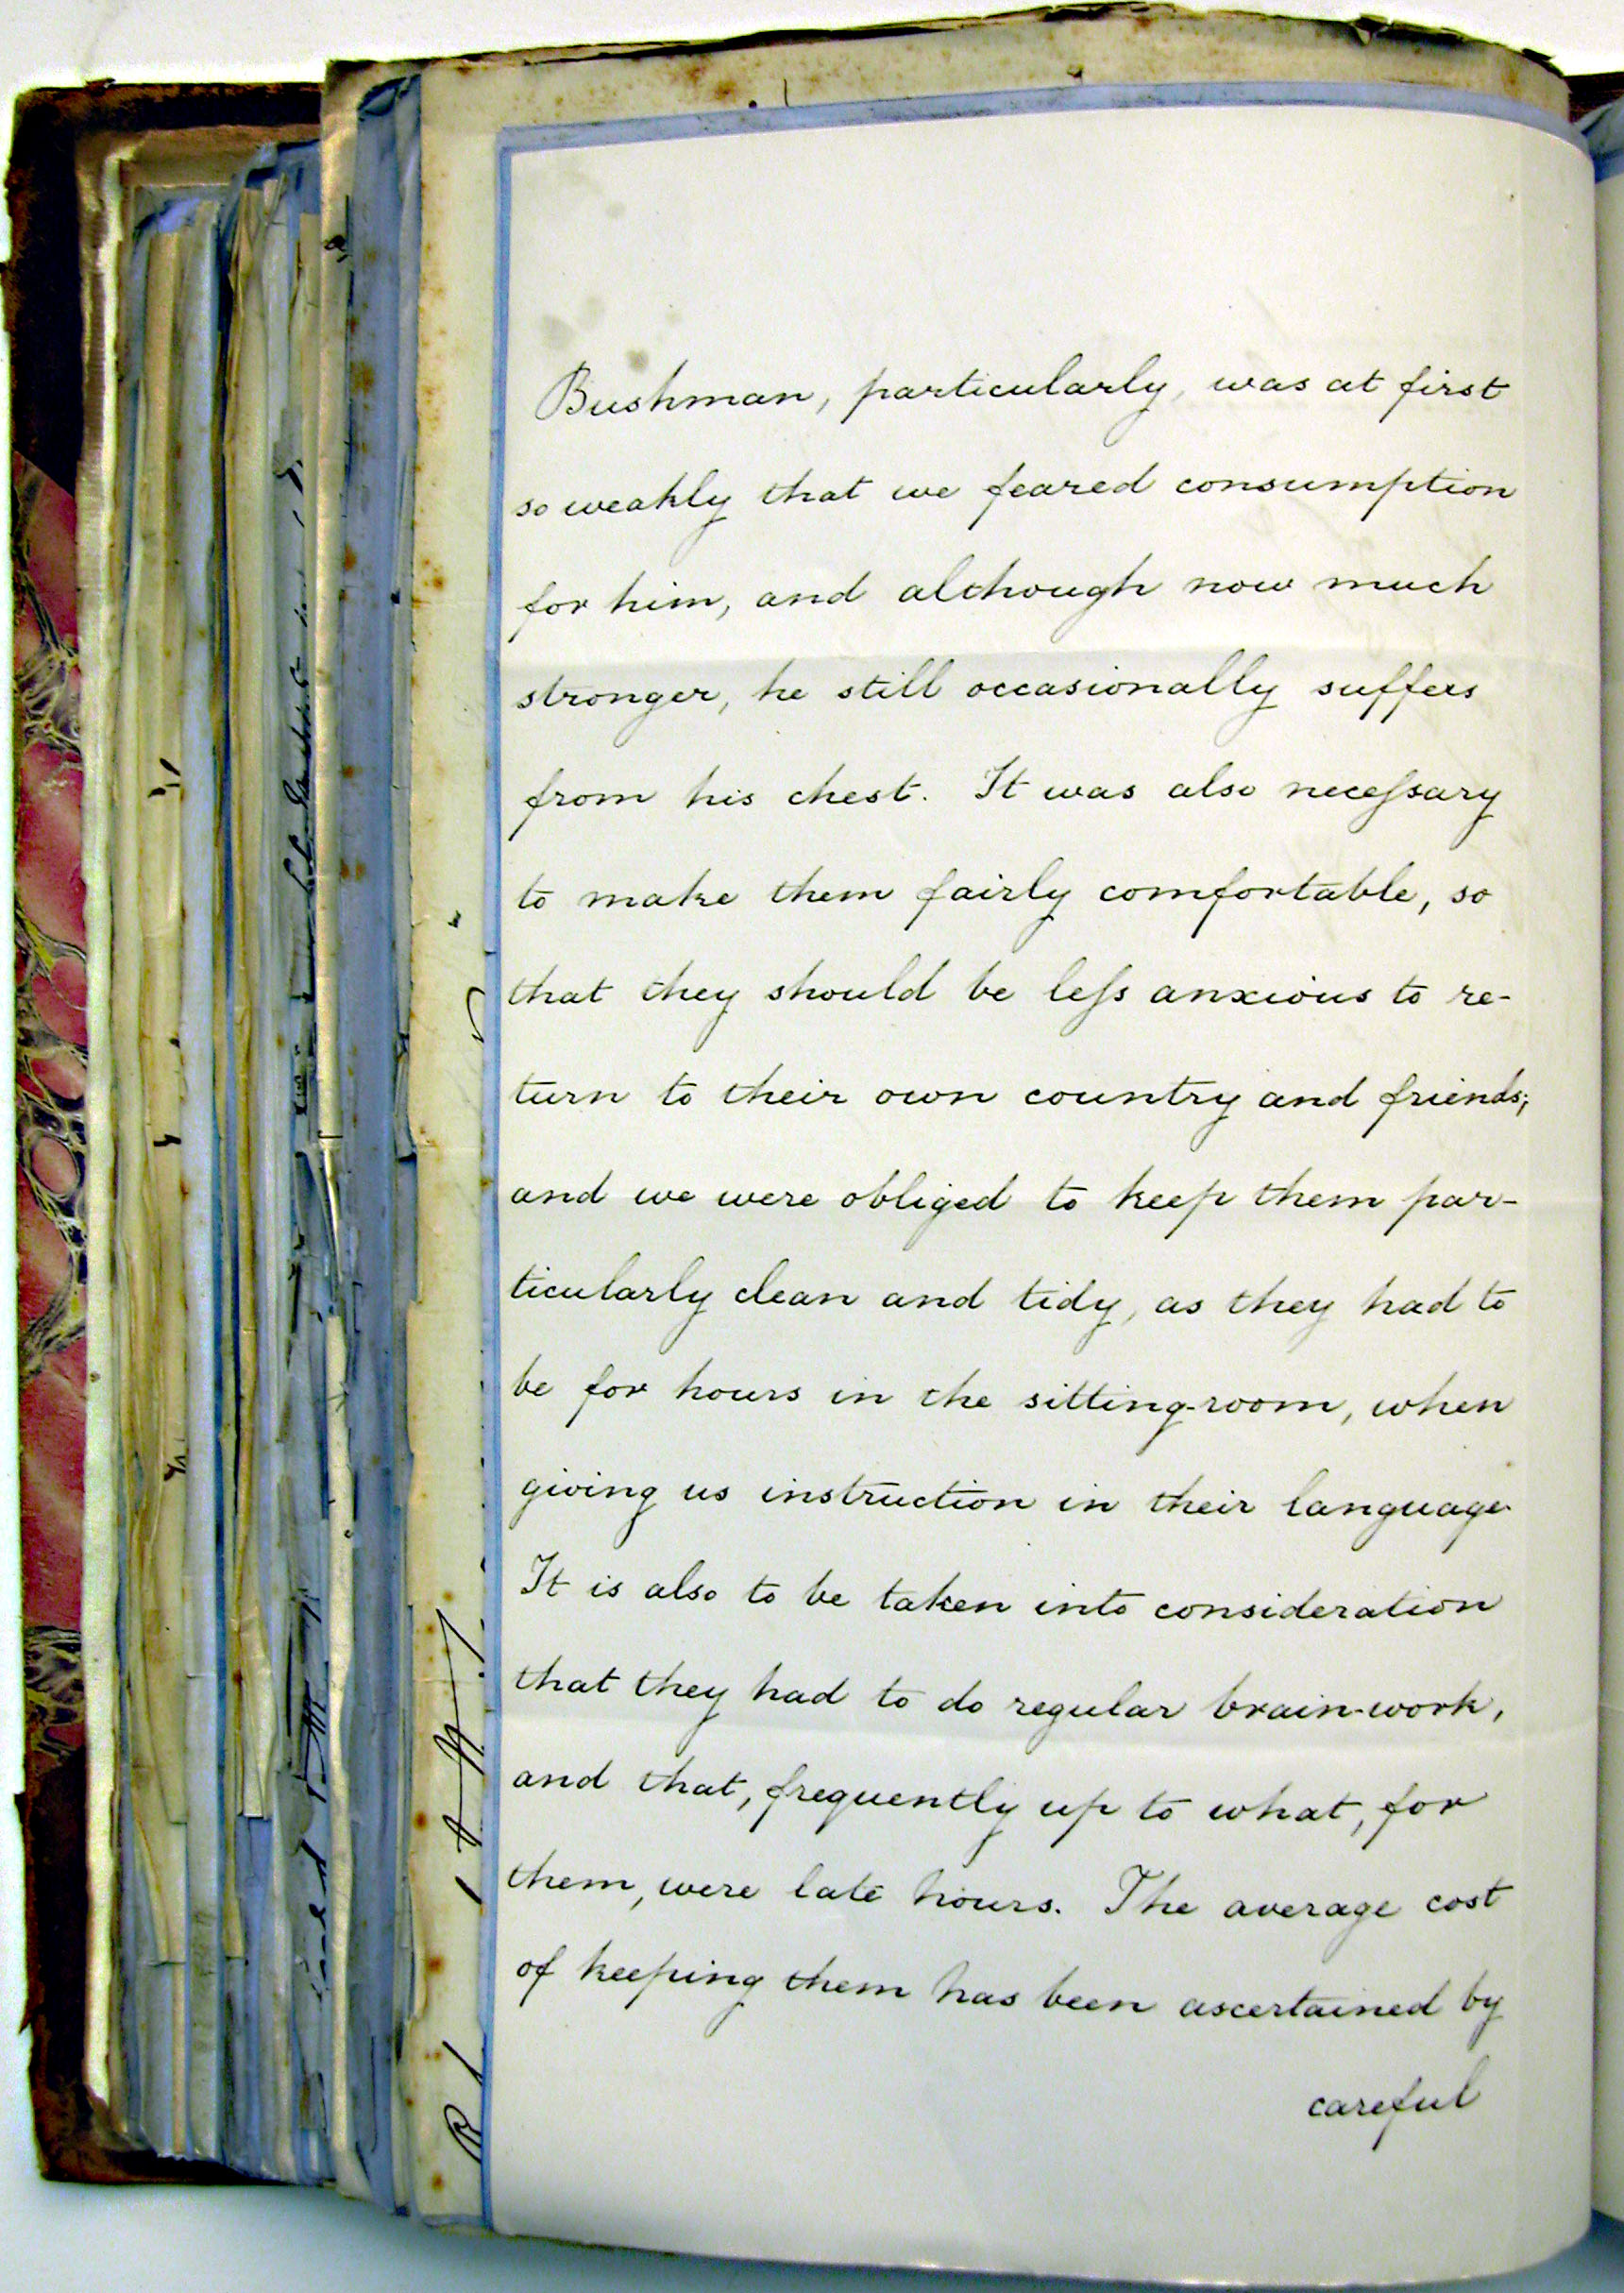 Bushman, particularly, was at first
so weakly that we feared consumption
for him, and although now much
stronger, he still occasionally suffers
from his chest. It was also neceſsary
to make them fairly comfortable, so
that they should be leſs anxious to re-
turn to their own country and friends;
and we were obliged to keep them par-
ticularly clean and tidy, as they had to
be for hours in the sitting-room, when
giving us instruction in their language.
It is also to be taken into consideration
that they had to do regular brain-work,
and that, frequently up to what, for
them, were late hours. The average cost
of keeping them has been ascertained by
careful